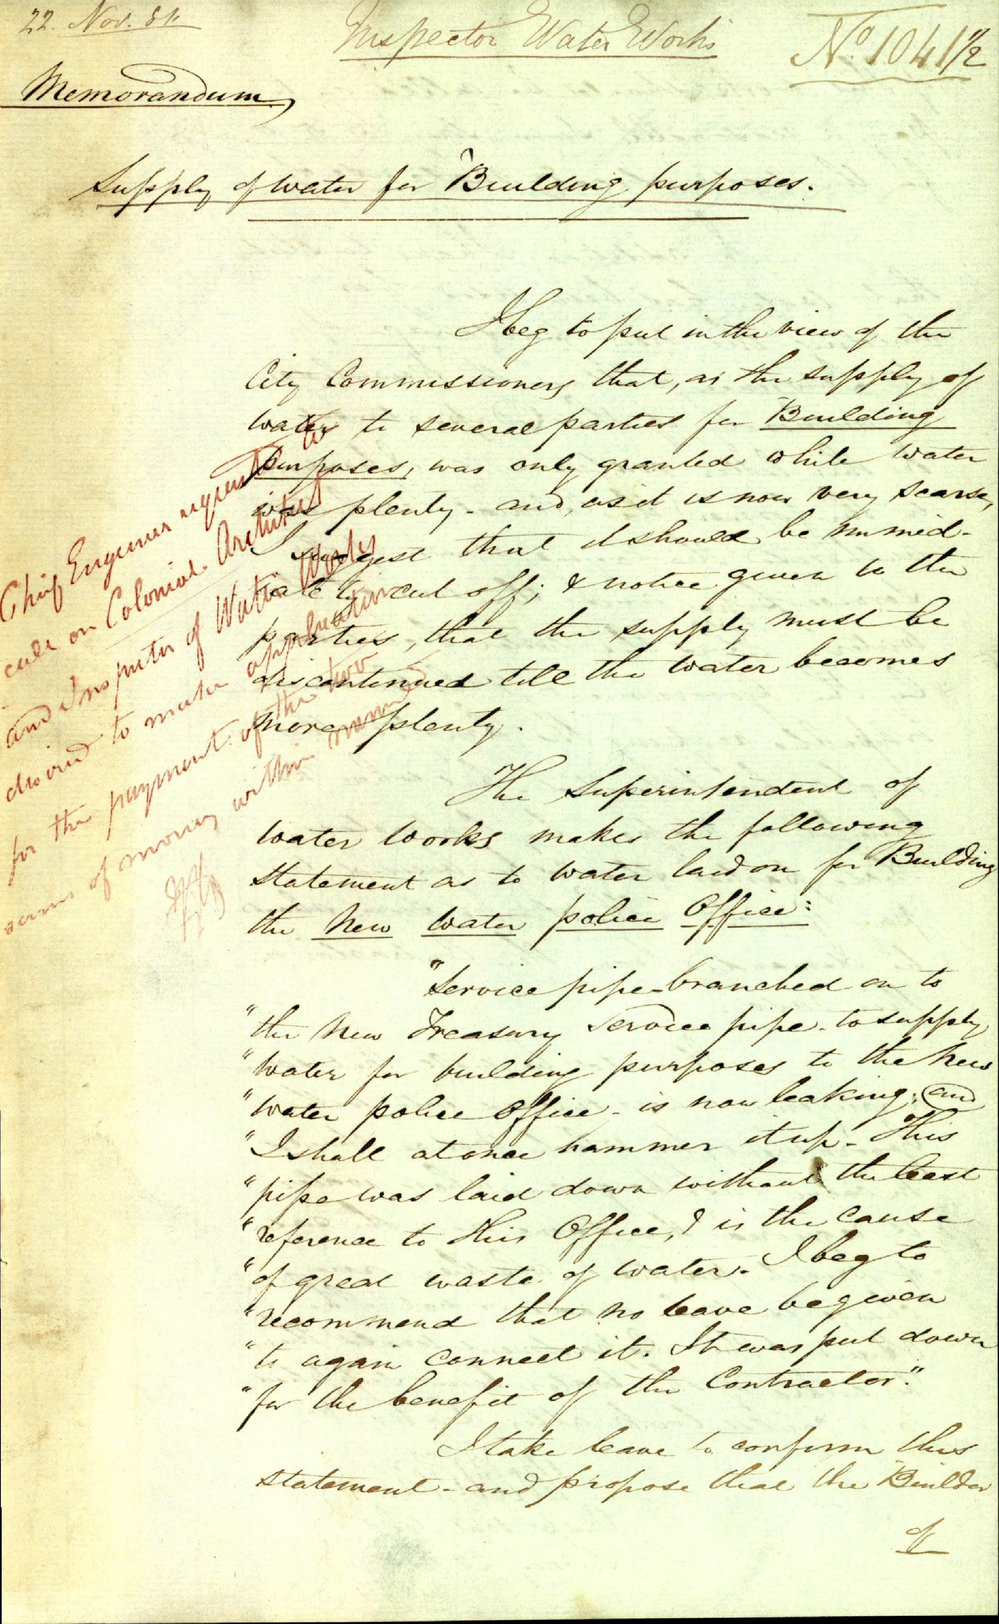 22. Nov. 54
Inspector Water Works
No. 1041 1/2
Memorandum
Supply of water for "Building purposes.
I beg to put in the view of the
City Commissioners, that, as the supply of
water to several parties for Building
purposes, was only granted while water
was plenty - and, as it is now very scarse,
I suggest that it should be immed-
iately cut off; & notice given to the
parties, that the supply must be
discontinued till the water becomes
more plenty.
Chief Engineer requested to
call on Colonial Architect
and Inspector of Water Works
desired to make application
for the payment of the two
sums of money within
The Superintendent of
Water Works makes the following
Statement as to water laid on for Building
the New Water police Office:
"Service pipe branched on to
"the New Treasury Service pipe - to supply
"Water for building purposes to the New
"Water police Office - is now leaking; and
"I shall at once hammer it up - This
"pipe was laid down without the least
"reference to this Office, & is the cause
"of great waste of water. I beg to
"recommend that no leave be given
"to again connect it. It was put down
"for the benefit of the Contractor."
I take leave to confirm this
statement - and propose that the Builder
of